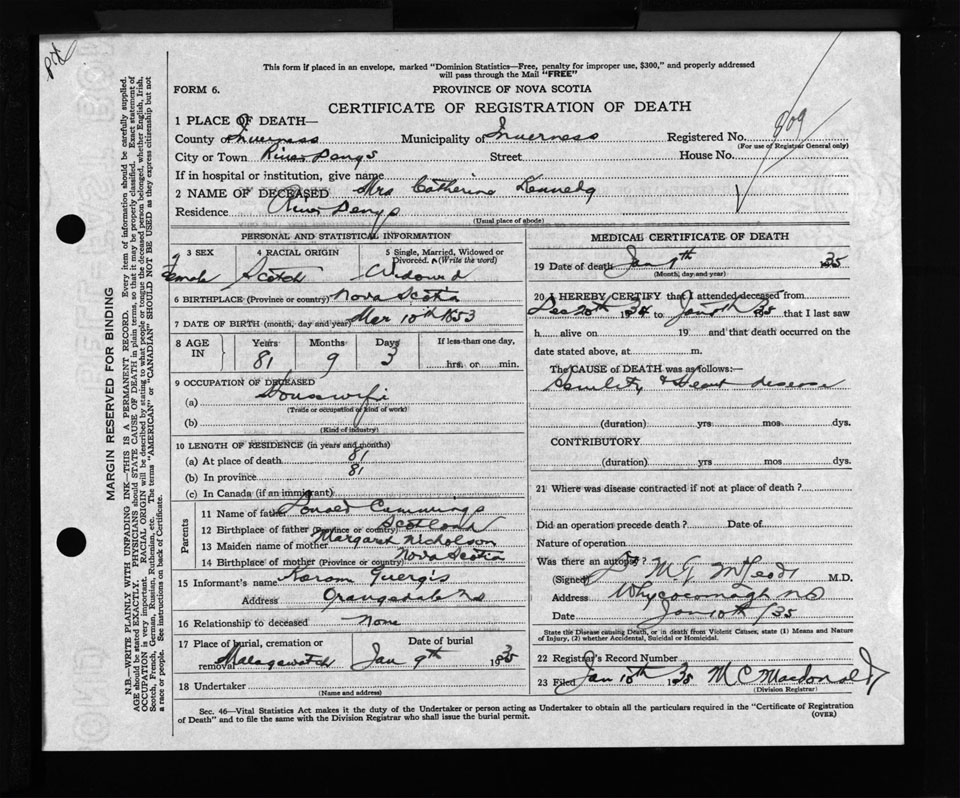 This form if placed in an envelope, marked "Dominion Statistics—Free, penalty for improper use, $300," and properly addressed
will pass through the Mail "FREE"
FORM 6.
PROVINCE OF NOVA SCOTIA
CERTIFICATE OF REGISTRATION OF DEATH
809
1 PLACE OF DEATH—
County of Inverness Municipality of Inverness Registered No.
(For use of Registrar General only)
City or Town River Denys Street House No.
If in hospital or institution, give name
2 NAME OF DECEASED Mrs Catherine Kennedy
Residence River Denys
(Usual place of abode)
PERSONAL AND STATISTICAL INFORMATION
3 SEX 4 RACIAL ORIGIN 5 Single, Married, Widowed or
Divorced. (Write the word)
Female Scotch Widowed
6 BIRTHPLACE (Province or country) Nova Scotia
7 DATE OF BIRTH (month, day and year) Mar 10th 1853
8 AGE IN Years Months Days If less than one day,
81 9 3 hrs. or min.
9 OCCUPATION OF DECEASED
(a) Housewife
(Trade or occupation or kind of work)
(b)
(Kind of industry)
10 LENGTH OF RESIDENCE (in years and months)
(a) At place of death 81
(b) In province 81
(c) In Canada (if an immigrant)
Parents
11 Name of father Donald Cummings
12 Birthplace of father (Province or country) Scotland
13 Maiden name of mother Margaret Nicholson
14 Birthplace of mother (Province or country) Nova Scotia
15 Informant's name Karom Guergis
Address Orangedale NS
16 Relationship to deceased None
17 Place of burial, cremation or Date of burial
removal Malagawatch Jan 9th 1935
18 Undertaker
(Name and address)
MEDICAL CERTIFICATE OF DEATH
19 Date of death Jan 35
(Month, day and year)
20 I HEREBY CERTIFY that I attended deceased from
Dec 20th 1934 to Jan 35 that I last saw
h alive on 19 and that death occurred on
date stated above, at m.
The CAUSE of DEATH was as follows:—
Senility & Heart desease
(duration) yrs mos dys.
CONTRIBUTORY
(duration) yrs mos dys.
21 Where was disease contracted if not at place of death?
Did an operation precede death? Date of
Nature of operation
Was there an autopsy?
(Signed) M.G. McLeod M.D.
Address Whycocomagh NS
Date Jan 10th /35
State the Disease causing Death, or in death from Violent Causes, state (1) Means and Nature
of Injury, (2) whether Accidental, Suicidal or Homicidal.
22 Registrar's Record Number
23 Filed Jan 10th 1935 M C Macdonald
(Division Registrar)
Sec. 46—Vital Statistics Act makes it the duty of the Undertaker or person acting as Undertaker to obtain all the particulars required in the "Certificate of Registration
of Death" and to file the same with the Division Registrar who shall issue the burial permit.
(OVER)
MARGIN RESERVED FOR BINDING
N.B.—WRITE PLAINLY WITH UNFADING INK—THIS IS A PERMANENT RECORD. Every item of information should be carefully supplied.
AGE should be stated EXACTLY. PHYSICIANS should STATE CAUSE OF DEATH in plain terms, so that it may be properly classified. Exact statement of
OCCUPATION is very important. RACIAL ORIGIN will be described by stating to what people or tongue the deceased person belonged, whether English, Irish,
Scotch, French, German, Russian, Ruthenian, etc. The terms "AMERICAN" or "CANADIAN" SHOULD NOT BE USED as they express citizenship but not
a race or people. See instructions on back of Certificate.